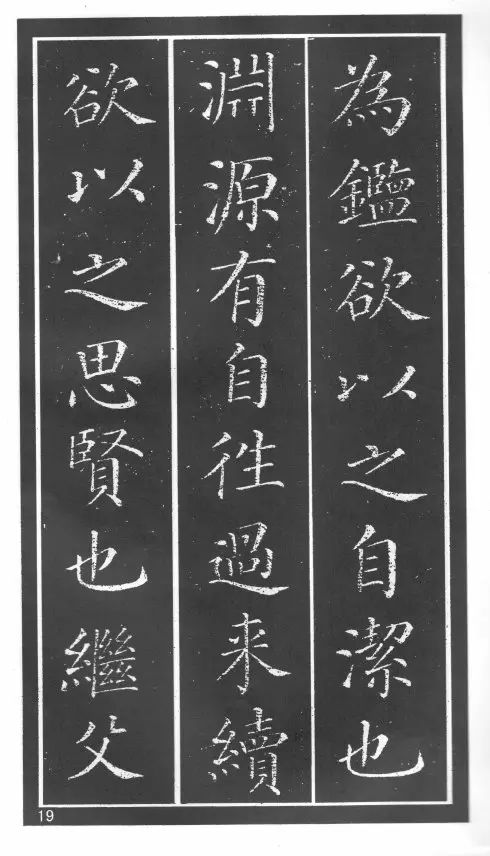 為鑑欲以之自潔也
淵源有自徃過来續
欲以之思賢也繼父
19